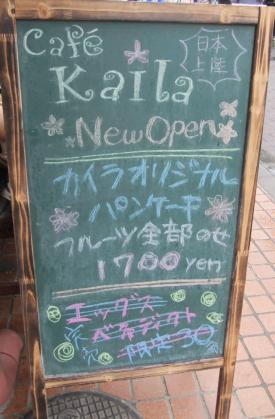 Café
日本
上陸
Kaila
New Open
カイラオリジナル
パンケーキ
フルーツ全部のせ
1700 yen
エッグス
ベネディクト
限定30